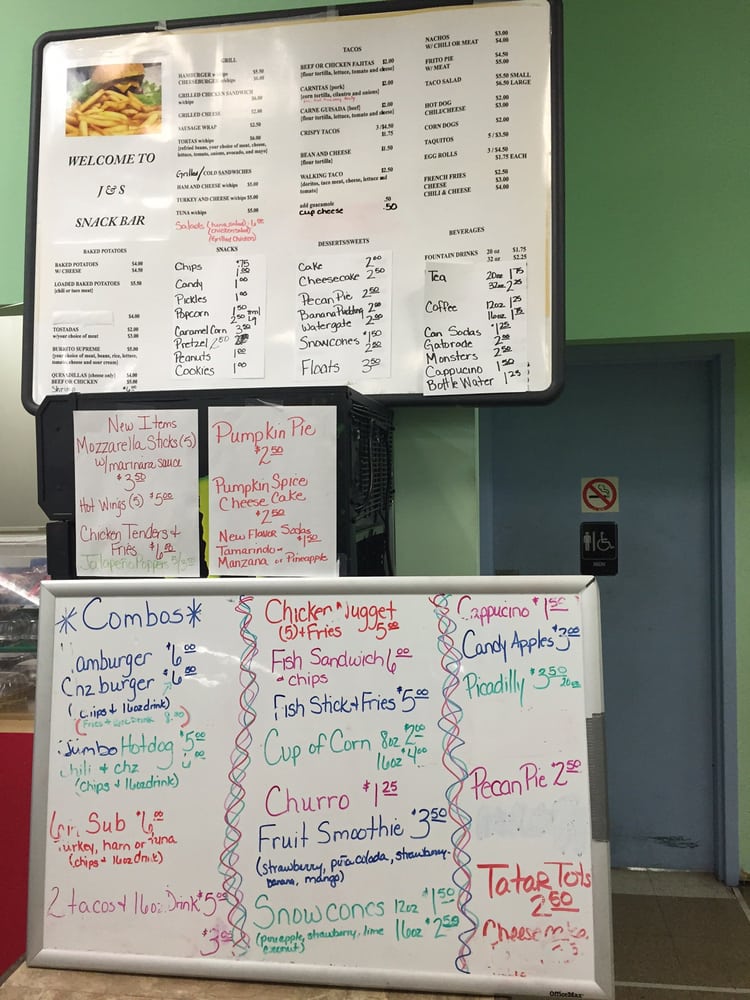 WELCOME TO
J & S
SNACK BAR
BAKED POTATOES
BAKED POTATOES $4.00
W/ CHEESE $4.50
LOADED BAKED POTATOES $5.50
[chili or taco meat]
$4.00
TOSTADAS $2.00
w/your choice of meat $3.00
BURRITO SUPREME $5.00
[your choice of meat, beans, rice, lettuce, tomato, cheese and sour cream]
QUESADILLAS (cheese only) $4.00
BEEF OR CHICKEN $5.00
Shrimp
GRILL
HAMBURGER w/chips $5.50
CHEESEBURGER w/chips $6.00
GRILLED CHICKEN SANDWICH
w/chips $6.00
GRILLED CHEESE $2.00
SAUSAGE WRAP $2.50
TORTAS w/chips $6.00
[refried beans, your choice of meat, cheese,
lettuce, tomato, onions, avocado, and mayo]
Grilled/COLD SANDWICHES
HAM AND CHEESE w/chips $5.00
TURKEY AND CHEESE w/chips $5.00
TUNA w/chips $5.00
Salads (tuna salad)
(chicken salad)
(Grilled Chicken)
SNACKS
Chips $.75
Candy 1.00
Pickles 1.00
Popcorn 1.50 sml
2.50 Lg
Caramel Corn 3.50
Pretzel 2.50
Peanuts 1.00
Cookies 1.00
TACOS
BEEF OR CHICKEN FAJITAS $2.00
[flour tortilla, lettuce, tomato and cheese]
CARNITAS [pork] $2.00
[corn tortilla, cilantro and onions]
CARNE GUISADA [beef] $2.00
[flour tortilla, lettuce, tomato and cheese]
CRISPY TACOS 3 /$4.50
$1.75
BEAN AND CHEESE $1.50
[flour tortilla]
WALKING TACO $2.50
[doritos, taco meat, cheese, lettuce and
tomato]
add guacamole .50
cup cheese .50
DESSERTS/SWEETS
Cake 2.00
Cheesecake 2.50
Pecan Pie 2.50
Banana Pudding 2.00
Watergate 2.00
Snowcones $1.50
2.50
Floats 3.50
NACHOS $3.00
W/ CHILI OR MEAT $4.00
FRITO PIE $4.50
W/ MEAT $5.00
TACO SALAD $5.50 SMALL
$6.50 LARGE
HOT DOG $2.00
CHILI/CHEESE $3.00
CORN DOGS $2.00
TAQUITOS 5 / $3.50
EGG ROLLS 3 /$4.50
$1.75 EACH
FRENCH FRIES $2.50
CHEESE $3.00
CHILI & CHEESE $4.00
BEVERAGES
FOUNTAIN DRINKS 20 oz $1.75
32 oz $2.25
Tea 20oz 1.75
32oz 2.25
Coffee 12oz 1.25
16oz 1.75
Can Sodas $1.25
Gatorade 2.00
Monsters 2.50
Cappucino 1.50
Bottle Water 1.25
New Items
Mozzarella Sticks (5)
w/ marinara sauce
$3.50
Hot Wings (5) $5.00
Chicken Tenders &
Fries $6.00
Jalapeño Poppers
Pumpkin Pie
$2.50
Pumpkin Spice
Cheese Cake
$2.50
New Flavor Sodas
$1.50
Tamarindo -
Manzana or Pineapple
MEN
*Combos*
amburger $6.00
Chzburger $6.50
(chips & 16oz drink)
Jumbo Hotdog $5.00
chili & chz
(chips & 16oz drink)
Sub $6.00
turkey, ham or tuna
(chips & 16oz drink)
2 tacos & 16oz. Drink $5.00
Chicken Nugget
(5) & Fries 5.00
Fish Sandwich 6.00
& chips
Fish Stick & Fries $5.00
Cup of Corn 8oz $2.00
16oz $4.00
Churro $1.25
Fruit Smoothie $3.50
(strawberry, piña colada, strawberry-
banana, mango)
Snowcones 12oz $1.50
(pineapple, strawberry, lime 16oz $2.50
coconut)
Cappucino $1.50
Candy Apples $3.00
Picadilly $3.50
20oz
Pecan Pie $2.50
Tatar Tots
2.50
Cheese
OfficeMax